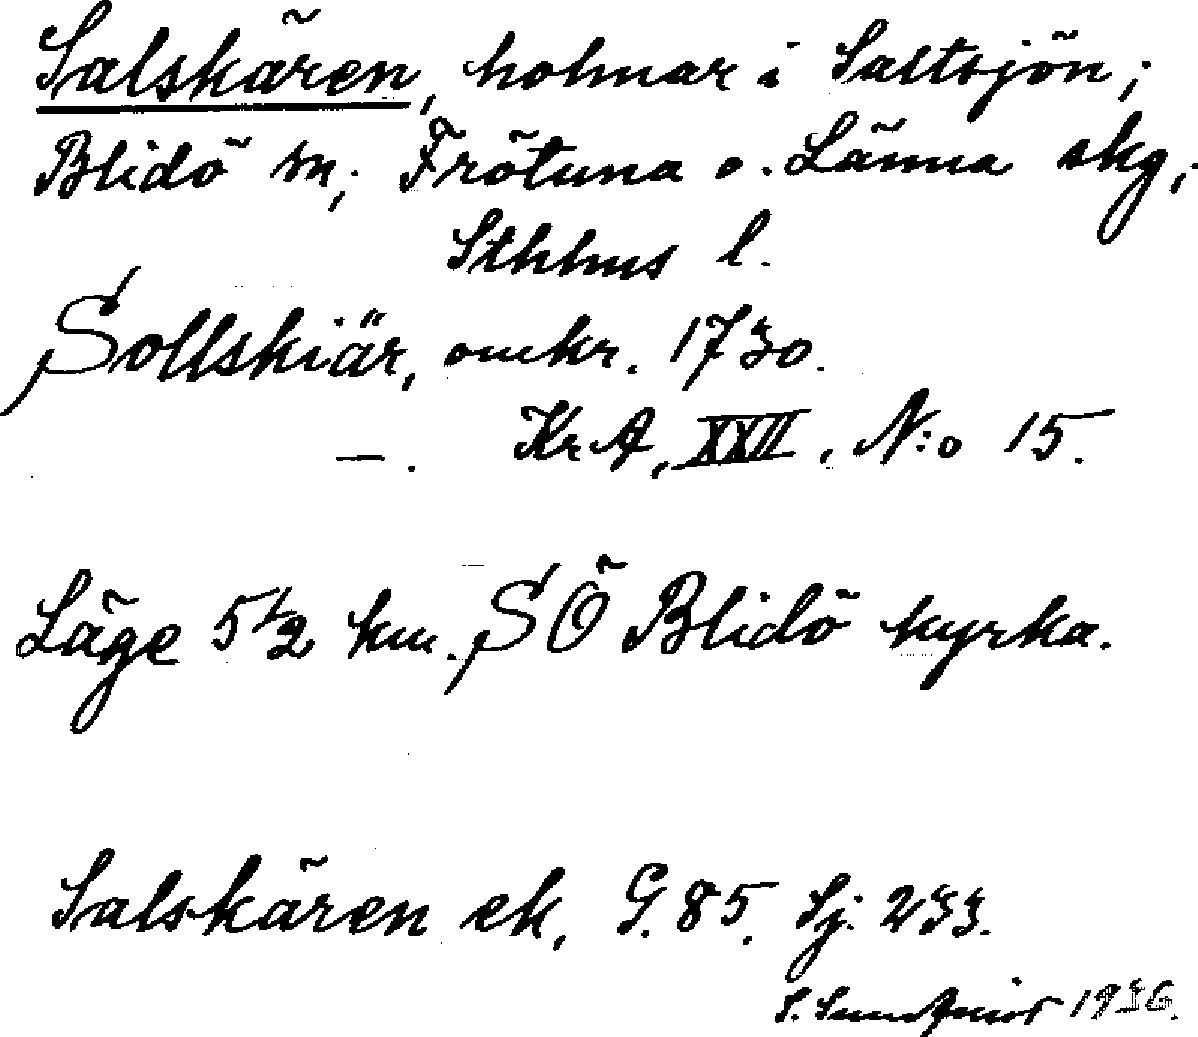 Salskären, holmar i Saltsjön;
Blidö sn; Frötuna o. Länna skg;
Sthlms l.
Sollskiär, omkr. 1730.
—. KrA, XXII, N:o 15.
Läge 5 1/2 km. SÖ Blidö kyrka.
Salskären ek, G. 85. Sj. 233.
S. Sundqvist 1936.